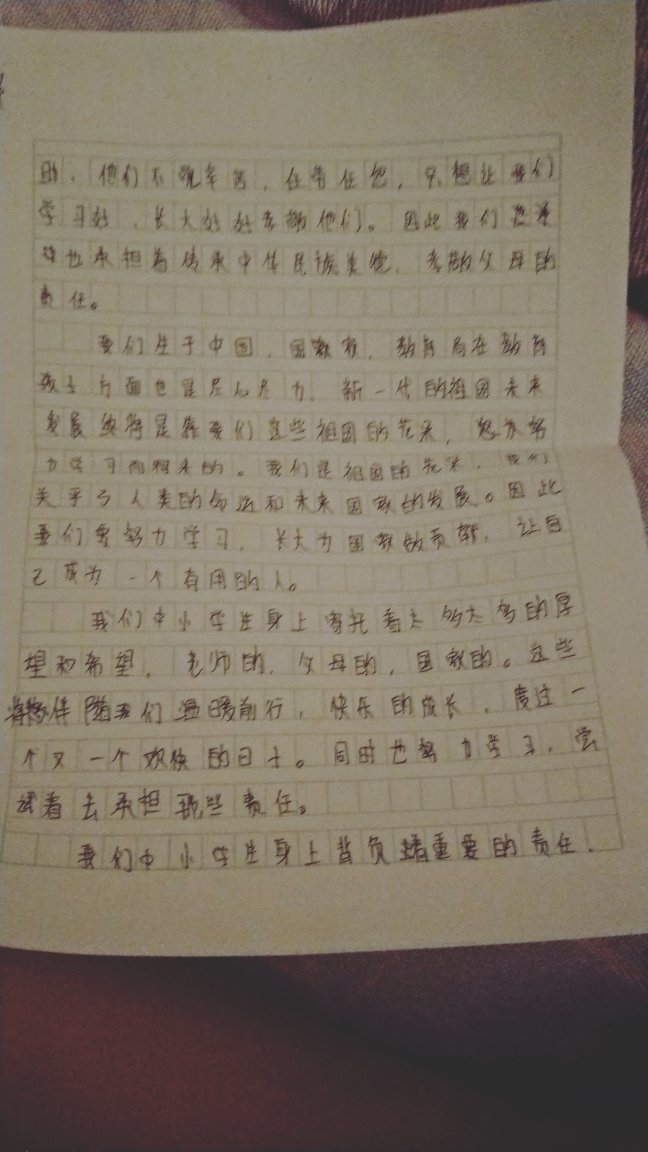 助，他们不说辛苦，任劳任怨，只想让我们
学习好，长大好好孝敬他们。因此我们
也承担着传承中华民族美德，孝敬父母的
责任。
我们生于中国，国家有，教育局在教育
孩子方面也是尽心尽力，新一代的祖国未来
发展终将是靠我们这些祖国的花朵，努
力学习而得来的。我们是祖国的花朵，我们
关乎与人类的命运和未来国家的发展。因此
我们要努力学习，长大为国家做贡献，让自
己成为一个有用的人。
我们中小学生身上寄托着太多太多的厚
望和希望，老师的，父母的，国家的。这些
将伴随我们温暖前行，快乐的成长，度过一
个又一个欢快的日子。同时也努力学习，尝
试着去承担那些责任。
我们中小学生身上背负着重要的责任，